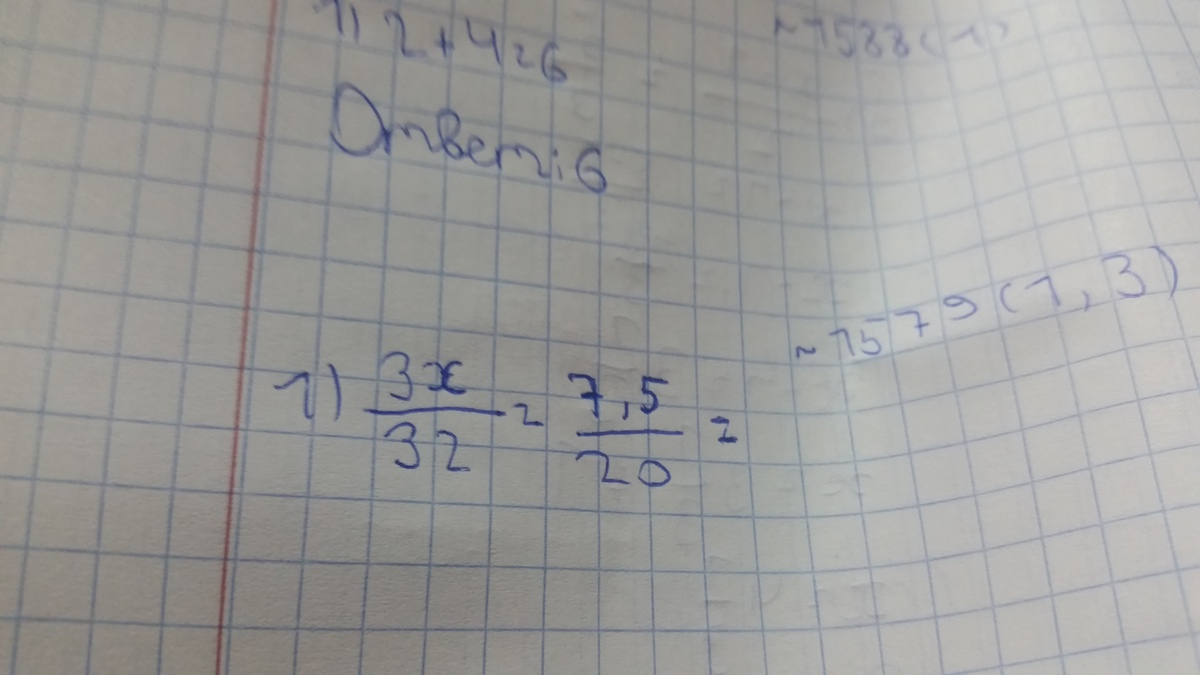 1) 2+4=6
~1588(1)
Ответ: 6
~1579(1,3)
1) 3x/32 = 7,5/20 =